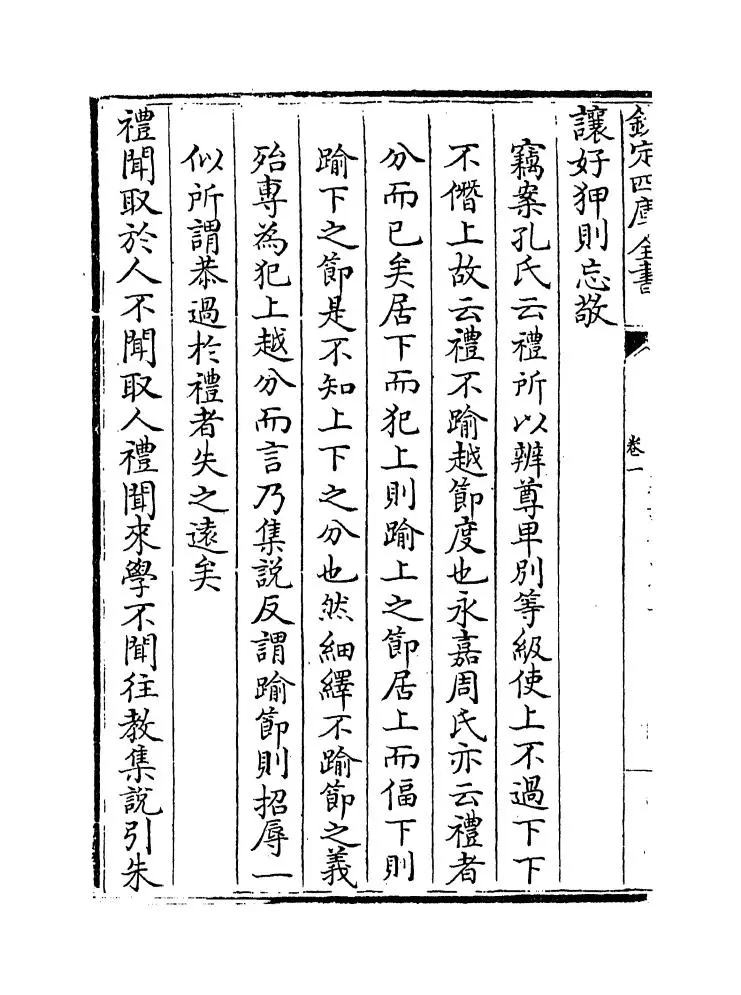 欽定四庫全書
卷一
讓好狎則忘敬
竊案孔氏云禮所以辨尊卑別等級使上不過下下
不僭上故云禮不踰越節度也永嘉周氏亦云禮者
分而已矣居下而犯上則踰上之節居上而偪下則
踰下之節是不知上下之分也然細繹不踰節之義
殆專為犯上越分而言乃集說反謂踰節則招辱一
似所謂恭過於禮者失之遠矣
禮聞取於人不聞取人禮聞來學不聞往教集說引朱